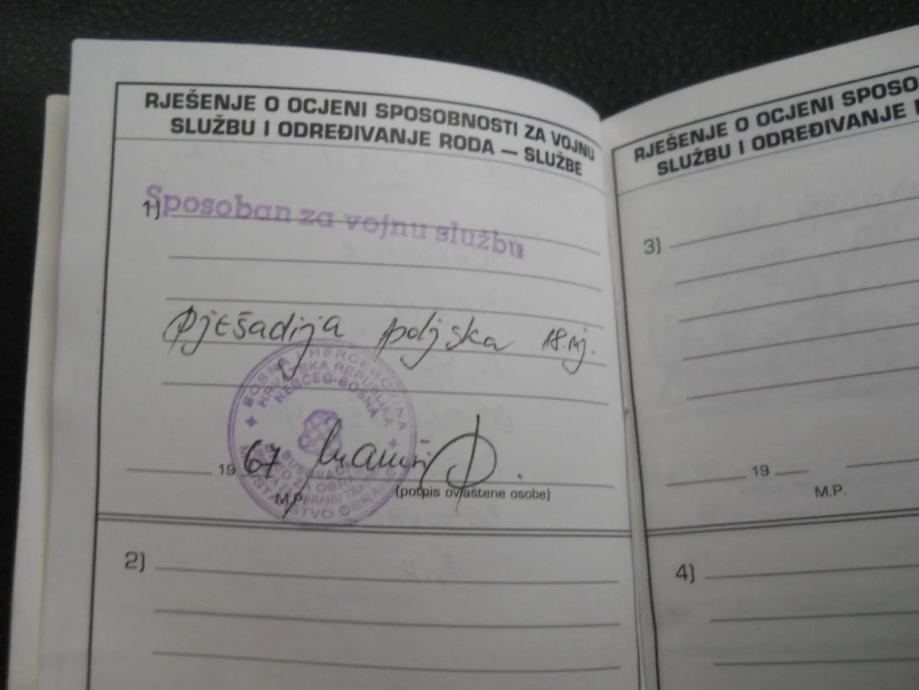 RJEŠENJE O OCJENI SPOSOBNOSTI ZA VOJNU
SLUŽBU I ODREĐIVANJE RODA — SLUŽBE
1)
Sposoban za vojnu službu
pješadija poljska 18.mj.
BOSNA I HERCEGOVINA
HRVATSKA REPUBLIKA
HERCEG-BOSNA
19 67
M.P.
(potpis ovlaštene osobe)
2)
RJEŠENJE O OCJENI SPOSO
SLUŽBU I ODREĐIVANJE
3)
19
M.P.
4)